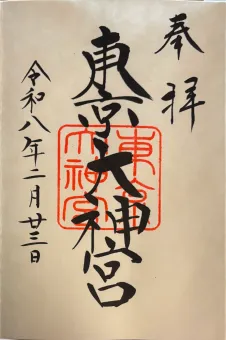 奉拝
東京大神宮
令和八年二月廿三日
東京大神宮